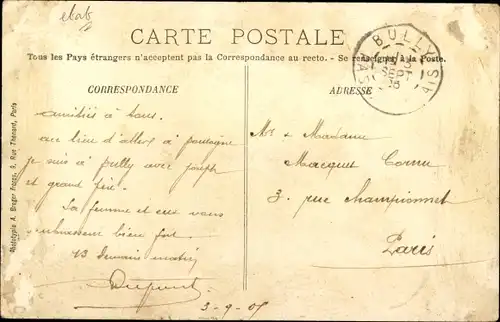 CARTE POSTALE
Tous les Pays étrangers n'acceptent pas la Correspondance au recto. - Se renseigner à la Poste.
CORRESPONDANCE
amitiés à tous.
au lieu d'aller à
je suis à avec joseph
et grand père.
La femme et eux vous
embrassent bien fort.
13 demain matin
Dupont
3-9-05
ADRESSE
Mr & Madame
Macquet Cornu
3. rue Championnet
Paris
BULLY
Phototypie A. Breger Frères, 9, Rue Thénard, Paris